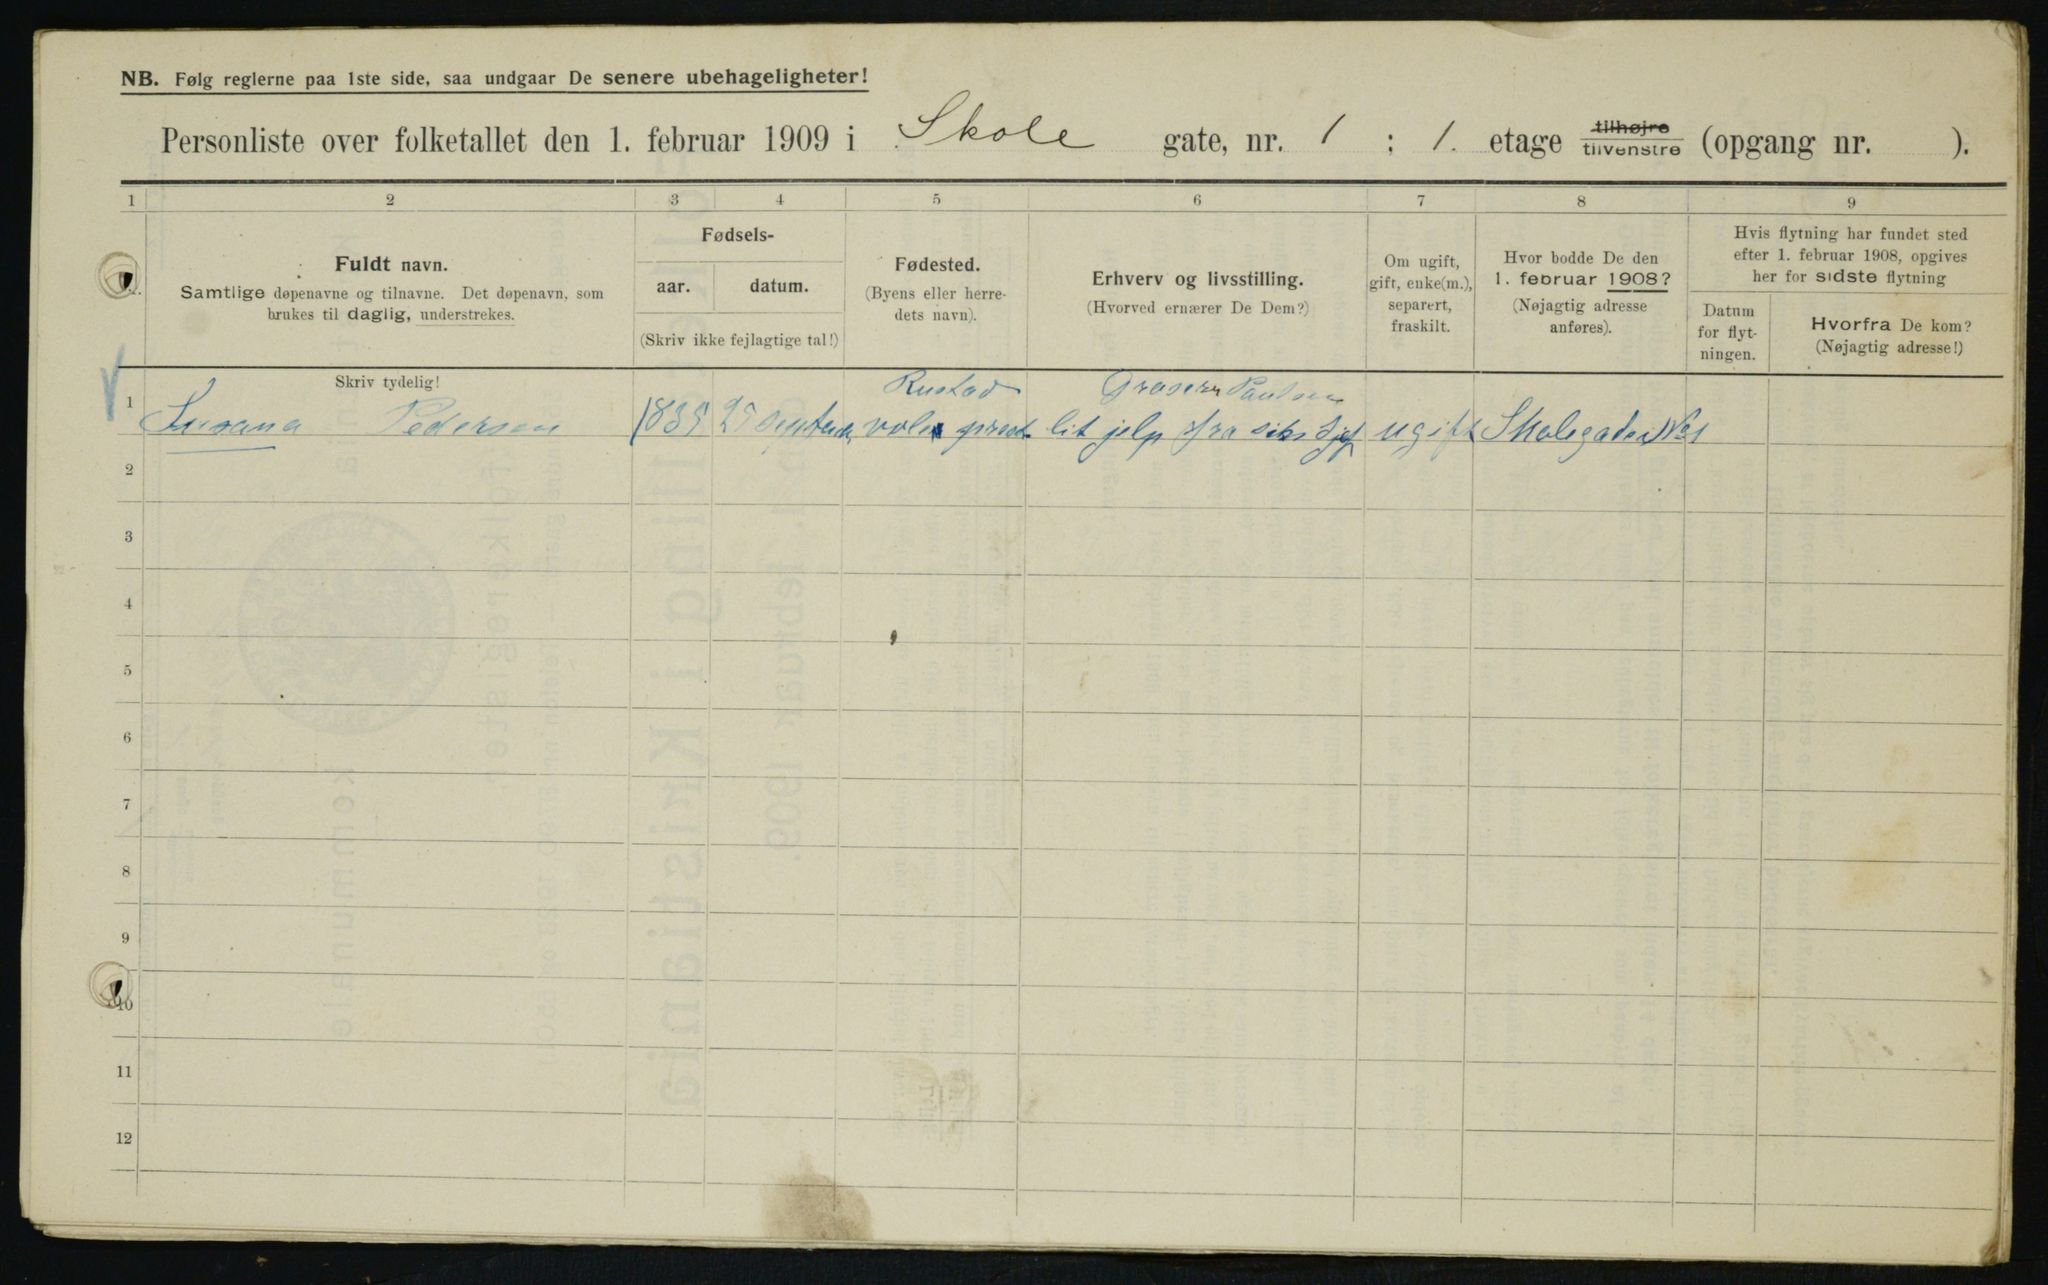 NB. Følg reglerne paa 1ste side, saa undgaar De senere ubehageligheter!
Personliste over folketallet den 1. februar 1909 i Skole gate, nr. 1 : 1. etage tilhøjre tilvenstre (opgang nr. ).
1 2 3 4 5 6 7 8 9
Fuldt navn.
Samtlige døpenavne og tilnavne. Det døpenavn, som
brukes til daglig, understrekes.
Fødsels-
aar. datum.
(Skriv ikke fejlagtige tal!)
Fødested.
(Byens eller herre-
dets navn).
Erhverv og livsstilling.
(Hvorved ernærer De Dem?)
Om ugift,
gift, enke(m.),
separert,
fraskilt.
Hvor bodde De den
1. februar 1908?
(Nøjagtig adresse
anføres).
Hvis flytning har fundet sted
efter 1. februar 1908, opgives
her for sidste flytning
Datum
for flyt-
ningen.
Hvorfra De kom?
(Nøjagtig adresse!)
Skriv tydelig!
Rustad
1 Susana Pedersen 1835 25 vole lit jelp fra ugift Skolegaden No1
2
3
4
5
6
7
8
9
10
11
12